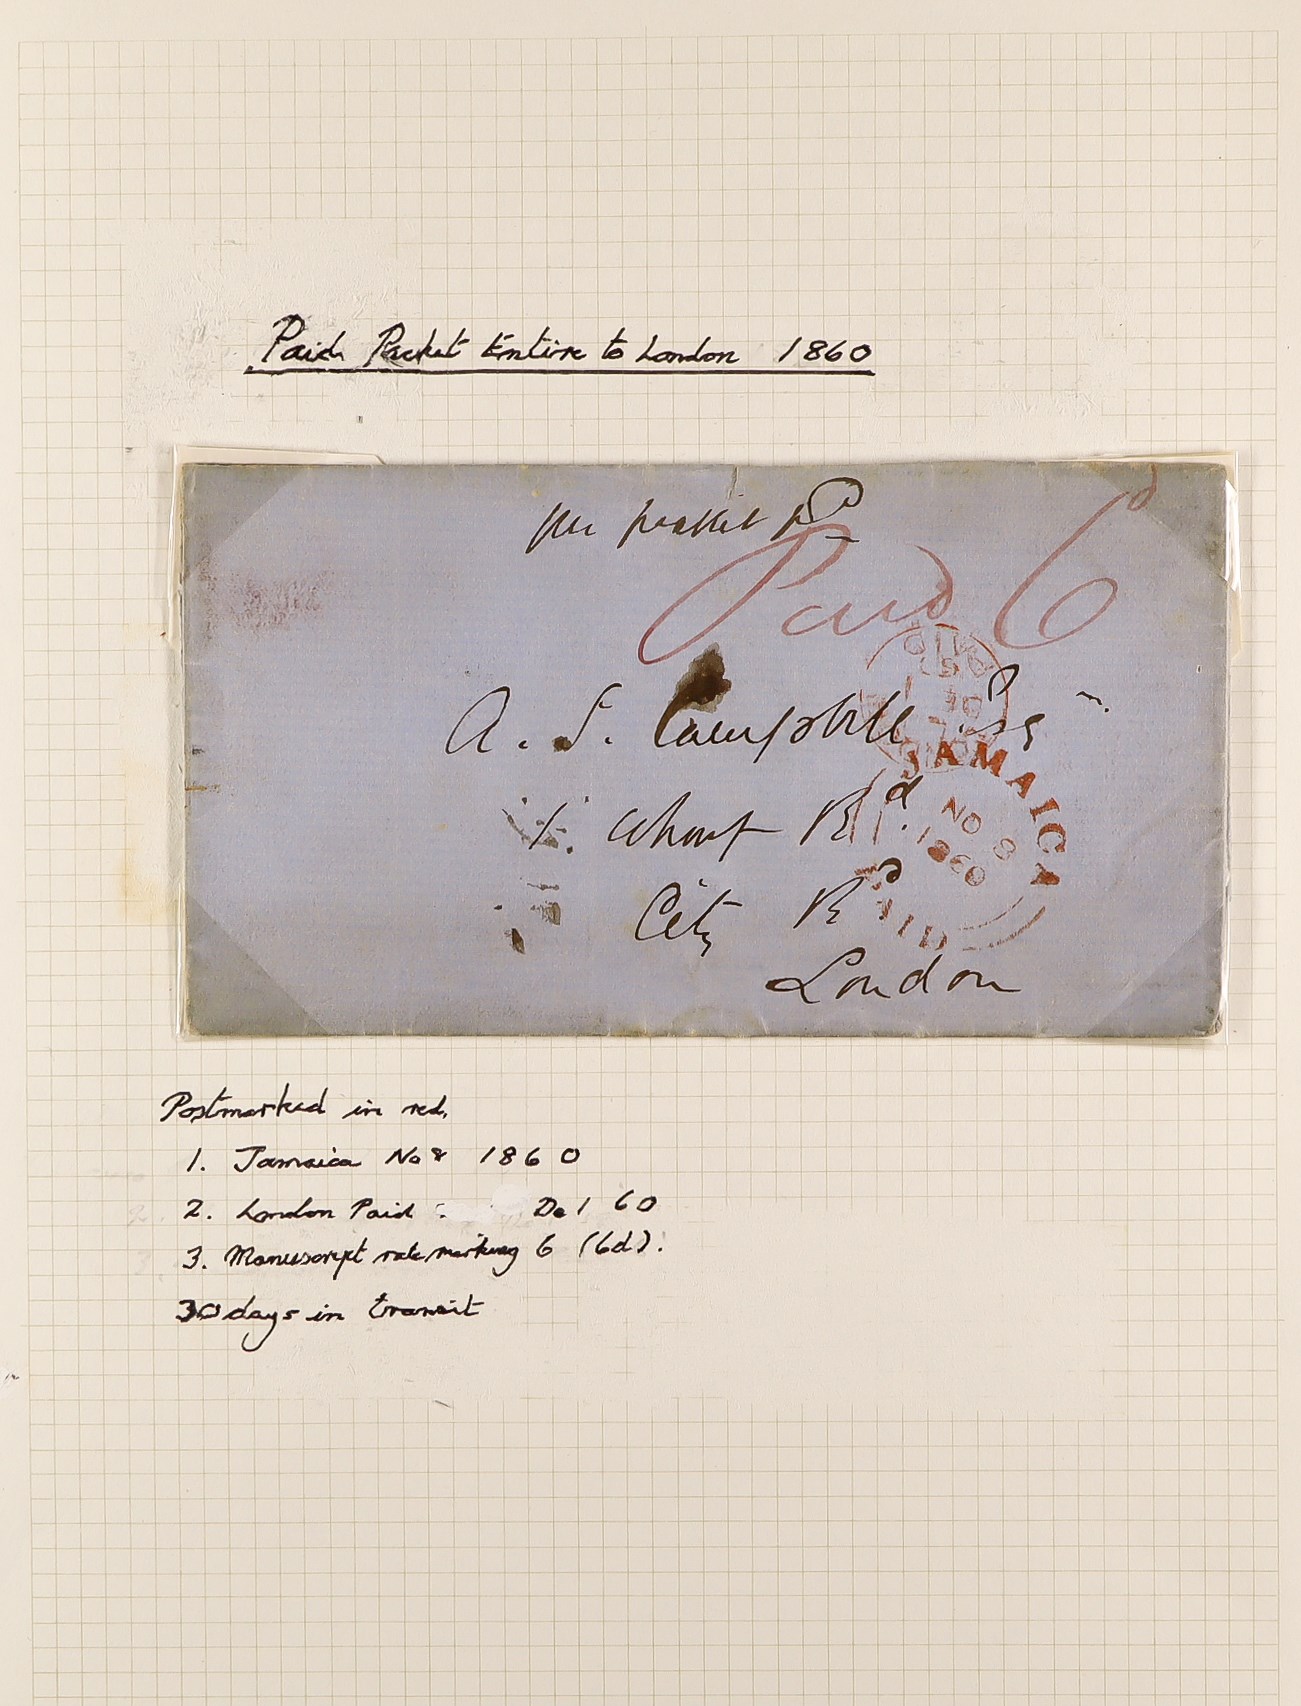 Paid Packet Entire to London 1860
per packet pd
Paid 6d
A. S. Campbell Esq
PAID
DE
JAMAICA
NO 8
1860
PAID
1. Wharf Rd.
City Rd
London
Postmarked in red.
1. Jamaica No 8 1860
2. London Paid De 1 60
3. Manuscript rate marking 6 (6d).
30 days in transit